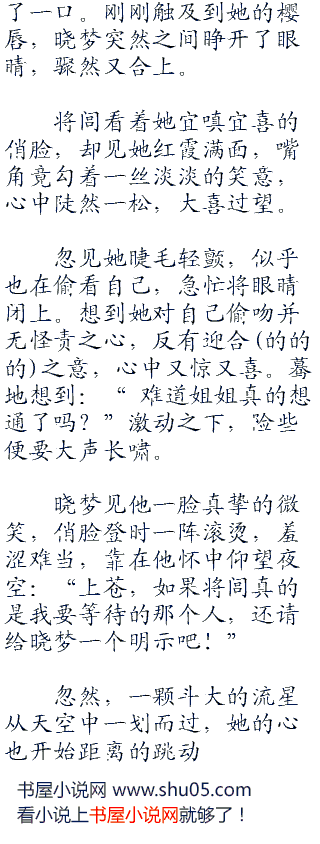 了一口。刚刚触及到她的樱
唇，晓梦突然之间睁开了眼
睛，骤然又合上。
将闾看着她宜嗔宜喜的
俏脸，却见她红霞满面，嘴
角竟勾着一丝淡淡的笑意，
心中陡然一松，大喜过望。
忽见她睫毛轻颤，似乎
也在偷看自己，急忙将眼睛
闭上。想到她对自己偷吻并
无怪责之心，反有迎合(的的
的)之意，心中又惊又喜。蓦
地想到：“ 难道姐姐真的想
通了吗？”激动之下，险些
便要大声长啸。
晓梦见他一脸真挚的微
笑，俏脸登时一阵滚烫，羞
涩难当，靠在他怀中仰望夜
空：“上苍，如果将闾真的
是我要等待的那个人，还请
给晓梦一个明示吧！”
忽然，一颗斗大的流星
从天空中一划而过，她的心
也开始距离的跳动
书屋小说网 www.shu05.com
看小说上书屋小说网就够了！